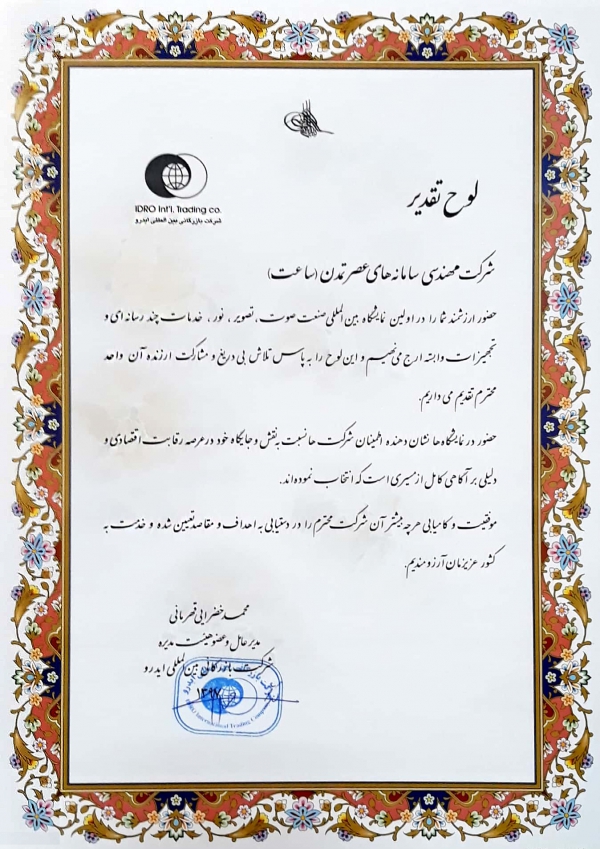 IDRO Int'l. Trading co.
شرکت بازرگانی بین المللی ایدرو
لوح تقدیر
شرکت مهندسی سامانه های عصر تمدن (ساعت)
حضور ارزشمند شما را در اولین نمایشگاه بین المللی صنعت صوت، تصویر، نور، خدمات چند رسانه ای و
تجهیزات وابسته ارج می نهیم و این لوح را به پاس تلاش بی دریغ و مشارکت ارزنده آن واحد
محترم تقدیم می داریم.
حضور در نمایشگاه ها نشان دهنده اطمینان شرکت ها نسبت به نقش و جایگاه خود در عرصه رقابت اقتصادی و
دلیلی بر آگاهی کامل از مسیری است که انتخاب نموده اند.
موفقیت و کامیابی هرچه بیشتر آن شرکت محترم را در دستیابی به اهداف و مقاصد تعیین شده و خدمت به
کشور عزیزمان آرزومندیم.
محمد خضرایی قهرمانی
مدیر عامل و عضو هیئت مدیره
شرکت بازرگانی بین المللی ایدرو
International Trading Company